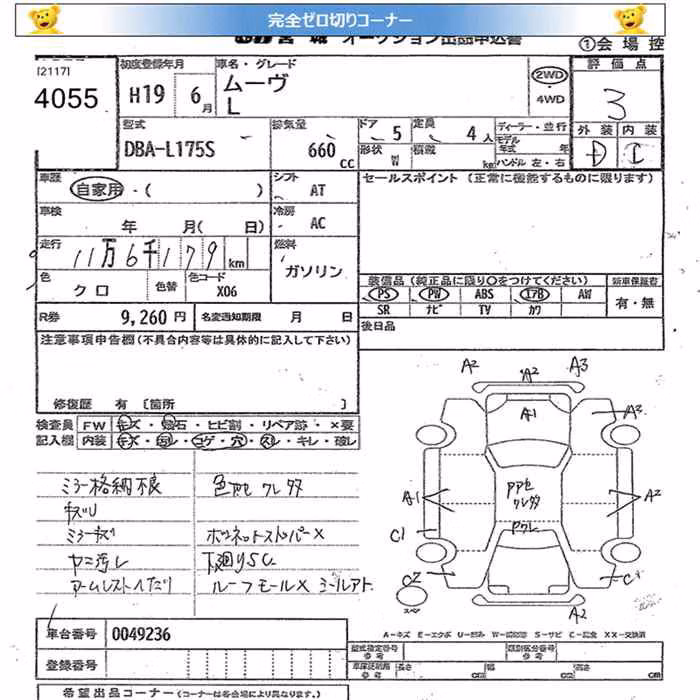 完全ゼロ切りコーナー
宮城 オークション出品申込書 ①会場控
[2117]
4055
初度登録年月 車名・グレード
H19 6月 ムーヴ
L
2WD
4WD
評価点
3
外装 内装
D C
型式 排気量 ドア 定員 ディーラー・並行
DBA-L175S 660 CC 5 4人
モデル年式 年
形状 積載 kg ハンドル 左・右
W
車歴 自家用・( )
シフト AT
セールスポイント (正常に機能するものに限ります)
車検 年 月( 日)
冷房 AC
走行 11万6千179km
燃料 ガソリン
色 クロ 色替 色コード X06
装備品 (純正品に限り○をつけてください) 新車保証書
PS PW ABS エアB AW 有・無
SR ナビ TV カワ
R券 9,260円 名変通知期限 月 日
後日品
注意事項申告欄(不具合内容等は具体的に記入して下さい)
修復歴 有 [箇所 ]
検査員 FW キズ・飛石・ヒビ割・リペア跡・×要
記入欄 内装 キズ・汚レ・コゲ・穴・スレ・キレ・破レ
ミラー格納不良
キズU
ミラーキズ
ヤニ汚レ
アームレストヘタリ
色アセ ワレ タタ
ボンネットストッパー×
下廻りSC
ルーフモール× シールアト
A2 A2 A3
A1 A3
A1 A2
C1
C2 C1
A2
スペア
A-キズ E-エクボ U-凹み W-補修跡 S-サビ C-腐食 XX-交換済
車台番号 0049236
登録番号
型式指定番号 参考 類別区分番号 参考
車体証明用 参考 長さ cm 幅 cm 高さ cm
希望出品コーナー (コーナーは各会場により異なります。)